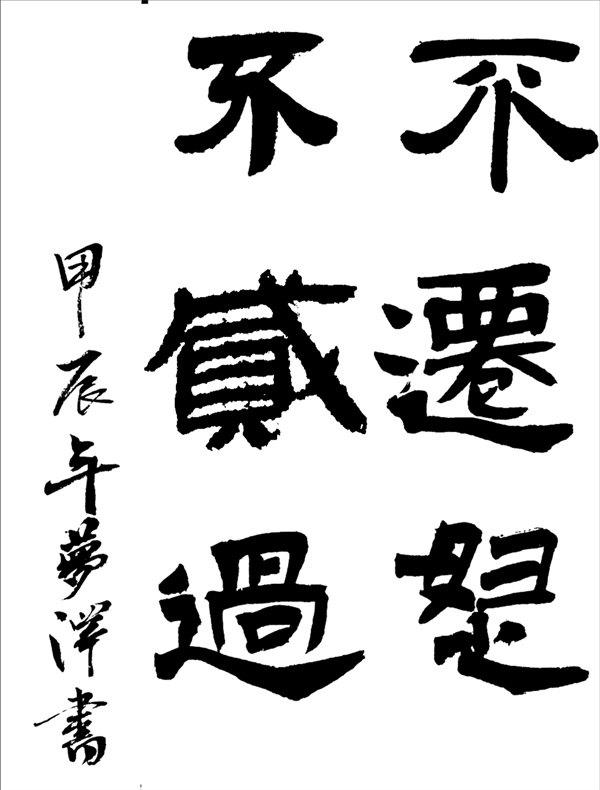 不遷怒
不貳過
甲辰年夢書